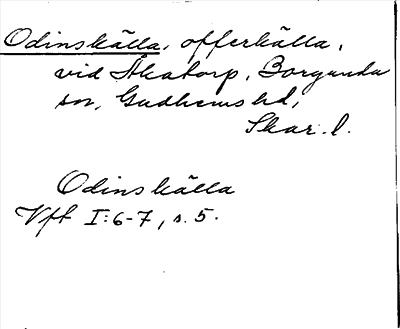 Odinskälla, offerkälla,
vid Åkatorp, Borgunda
sn, Gudhems hd,
Skar. l.
Odinskälla
Vft I:6-7, s. 5.